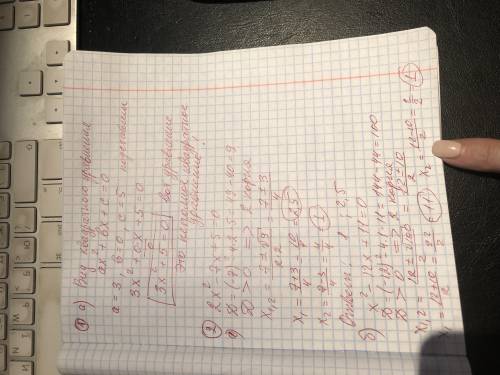 ① а) Вид квадратного уравнения
ax² + bx + c = 0
a = 3, b = 0, c = 5 подставим
3x² + 0x + 5 = 0
3x² + 5 = 0 это уравнение
это неполное квадратное
уравнение!
② 2x² - 7x + 5 = 0
D = (-7)² - 4·2·5 = 49 - 40 = 9
D > 0 => 2 корня
x₁,₂ = 7 ± √9 / 2·2 = 7 ± 3 / 4
x₁ = 7+3 / 4 = 10 / 4 = 2,5
x₂ = 7-3 / 4 = 4 / 4 = 1
Ответ: 1 ; 2,5
б) x² - 12x + 11 = 0
D = (-12)² - 4·1·11 = 144 - 44 = 100
D > 0 => 2 корня
x₁,₂ = 12 ± √100 / 2 = 12 ± 10 / 2
x₁ = 12+10 / 2 = 22 / 2 = 11
x₂ = 12-10 / 2 = 2 / 2 = 1